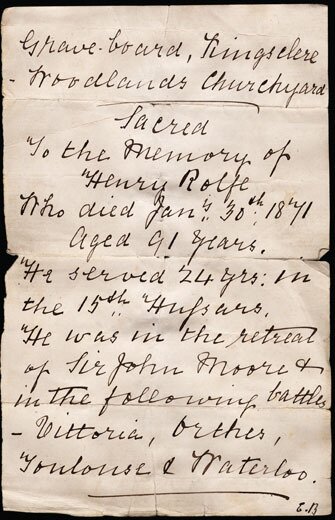 Grave-board, Kingsclere
- Woodlands Churchyard
Sacred
To the Memory of
Henry Rolfe
Who died Jany. 30th: 1871
Aged 91 Years.
He served 24 yrs: in
the 15th Hussars.
He was in the retreat
of Sir John Moore &
in the following battles
- Vittoria, Orthes,
Toulouse & Waterloo.
E.B